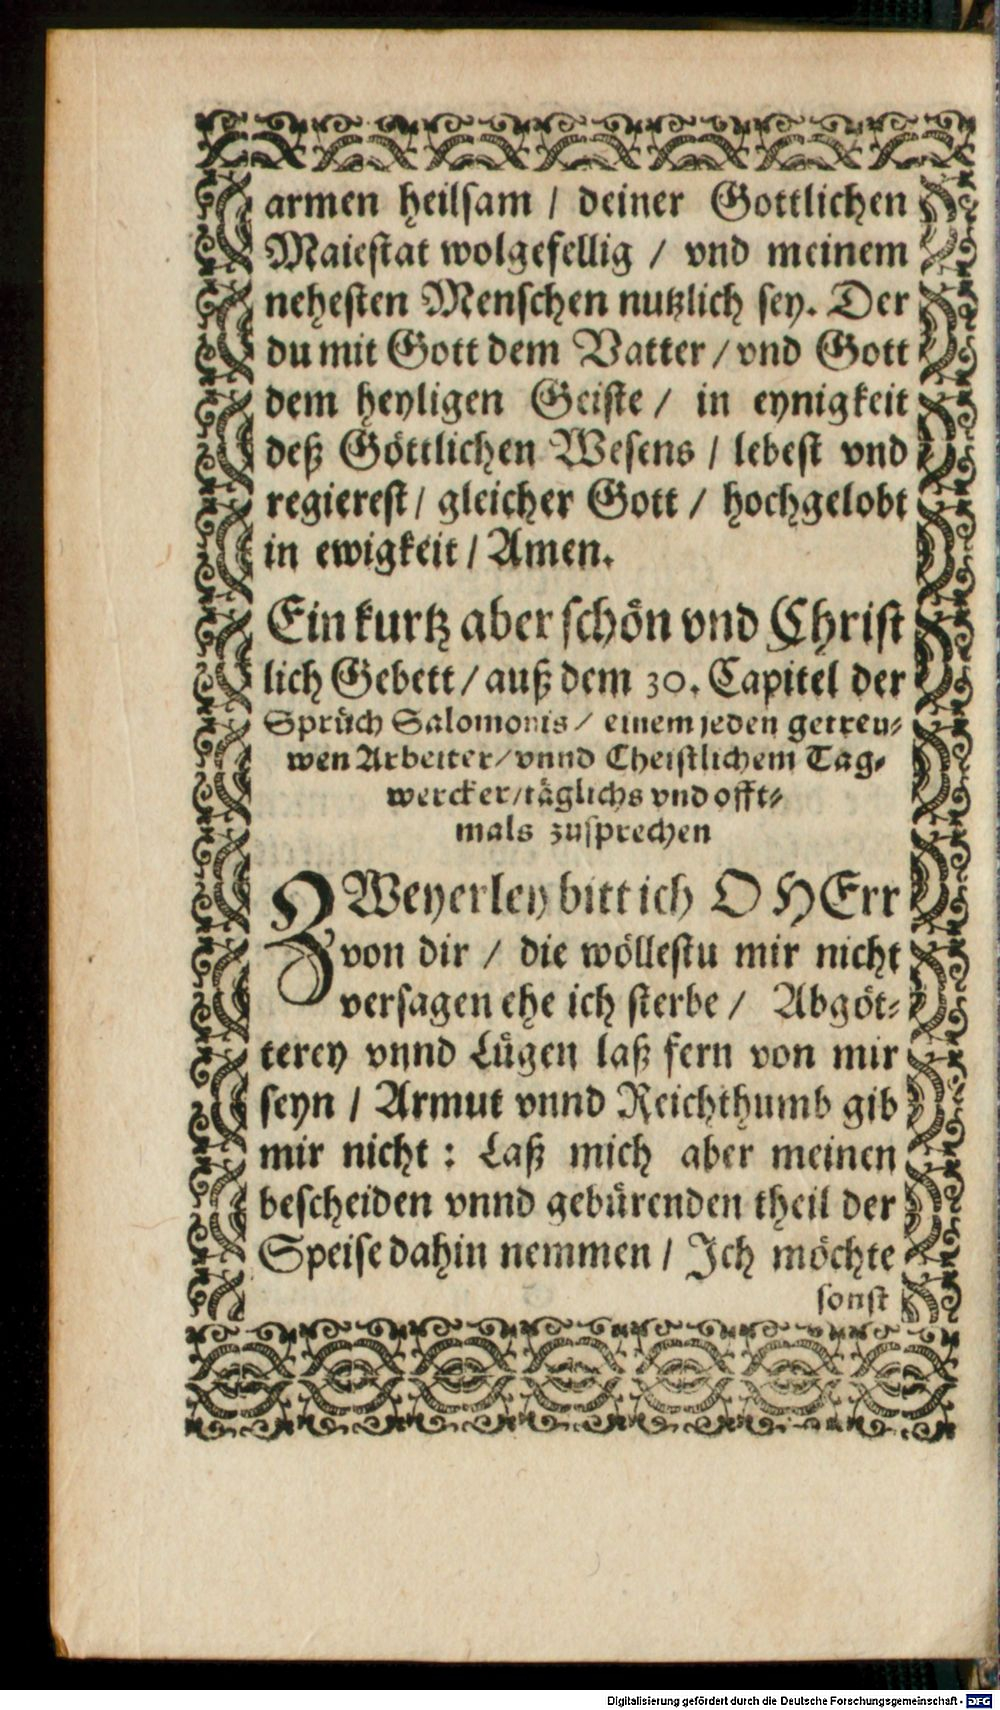 armen heilsam / deiner Gottlichen
Maiestat wolgefellig / vnd meinem
nehesten Menschen nutzlich sey. Der
du mit Gott dem Vatter / vnd Gott
dem heyligen Geiste / in eynigkeit
deß Göttlichen Wesens / lebest vnd
regierest / gleicher Gott / hochgelobt
in ewigkeit / Amen.
Ein kurtz aber schön vnd Christ
lich Gebett / auß dem 30. Capitel der
Sprüch Salomonis / einem jeden getreu-
wen Arbeiter / vnnd Christlichem Tag-
wercker / täglichs vnd offt-
mals zusprechen
ZWeyerley bitt ich O HErr
von dir / die wöllestu mir nicht
versagen ehe ich sterbe / Abgöt-
terey vnnd Lügen laß fern von mir
seyn / Armut vnnd Reichthumb gib
mir nicht : Laß mich aber meinen
bescheiden vnnd gebürenden theil der
Speise dahin nemmen / Ich möchte
sonst
Digitalisierung gefördert durch die Deutsche Forschungsgemeinschaft - DFG